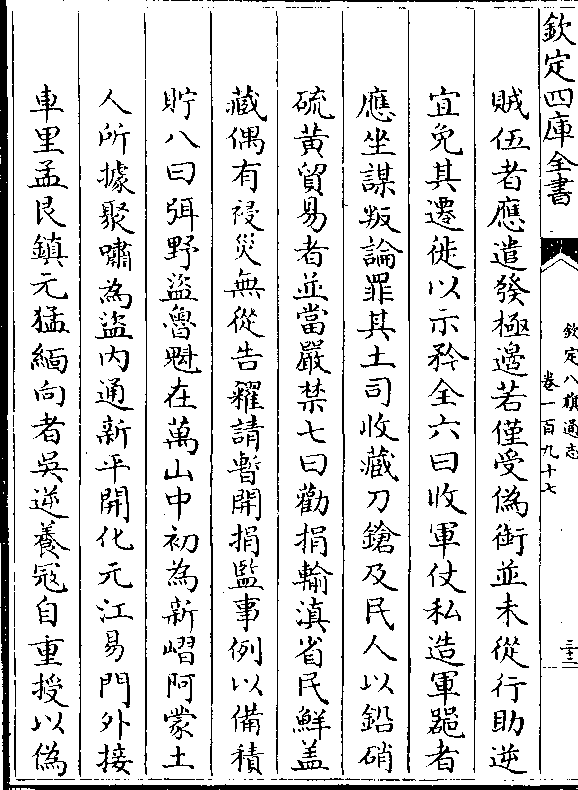 欽定四庫全書
欽定八旗通志
卷一百九十七
三十三
賊伍者應遣發極邊若僅受偽銜並未從行助逆
宜免其遷徙以示矜全六曰收軍仗私造軍器者
應坐謀叛論罪其土司收藏刀鎗及民人以鉛硝
硫黄貿易者並當嚴禁七曰勸捐輸滇省民鮮盖
藏偶有祲災無從告糴請暫開捐監事例以備積
貯八曰弭野盜魯魁在萬山中初為新嶍阿蒙土
人所據聚嘯為盜内通新平開化元江易門外接
車里孟艮鎮元猛緬向者吳逆養冦自重授以偽